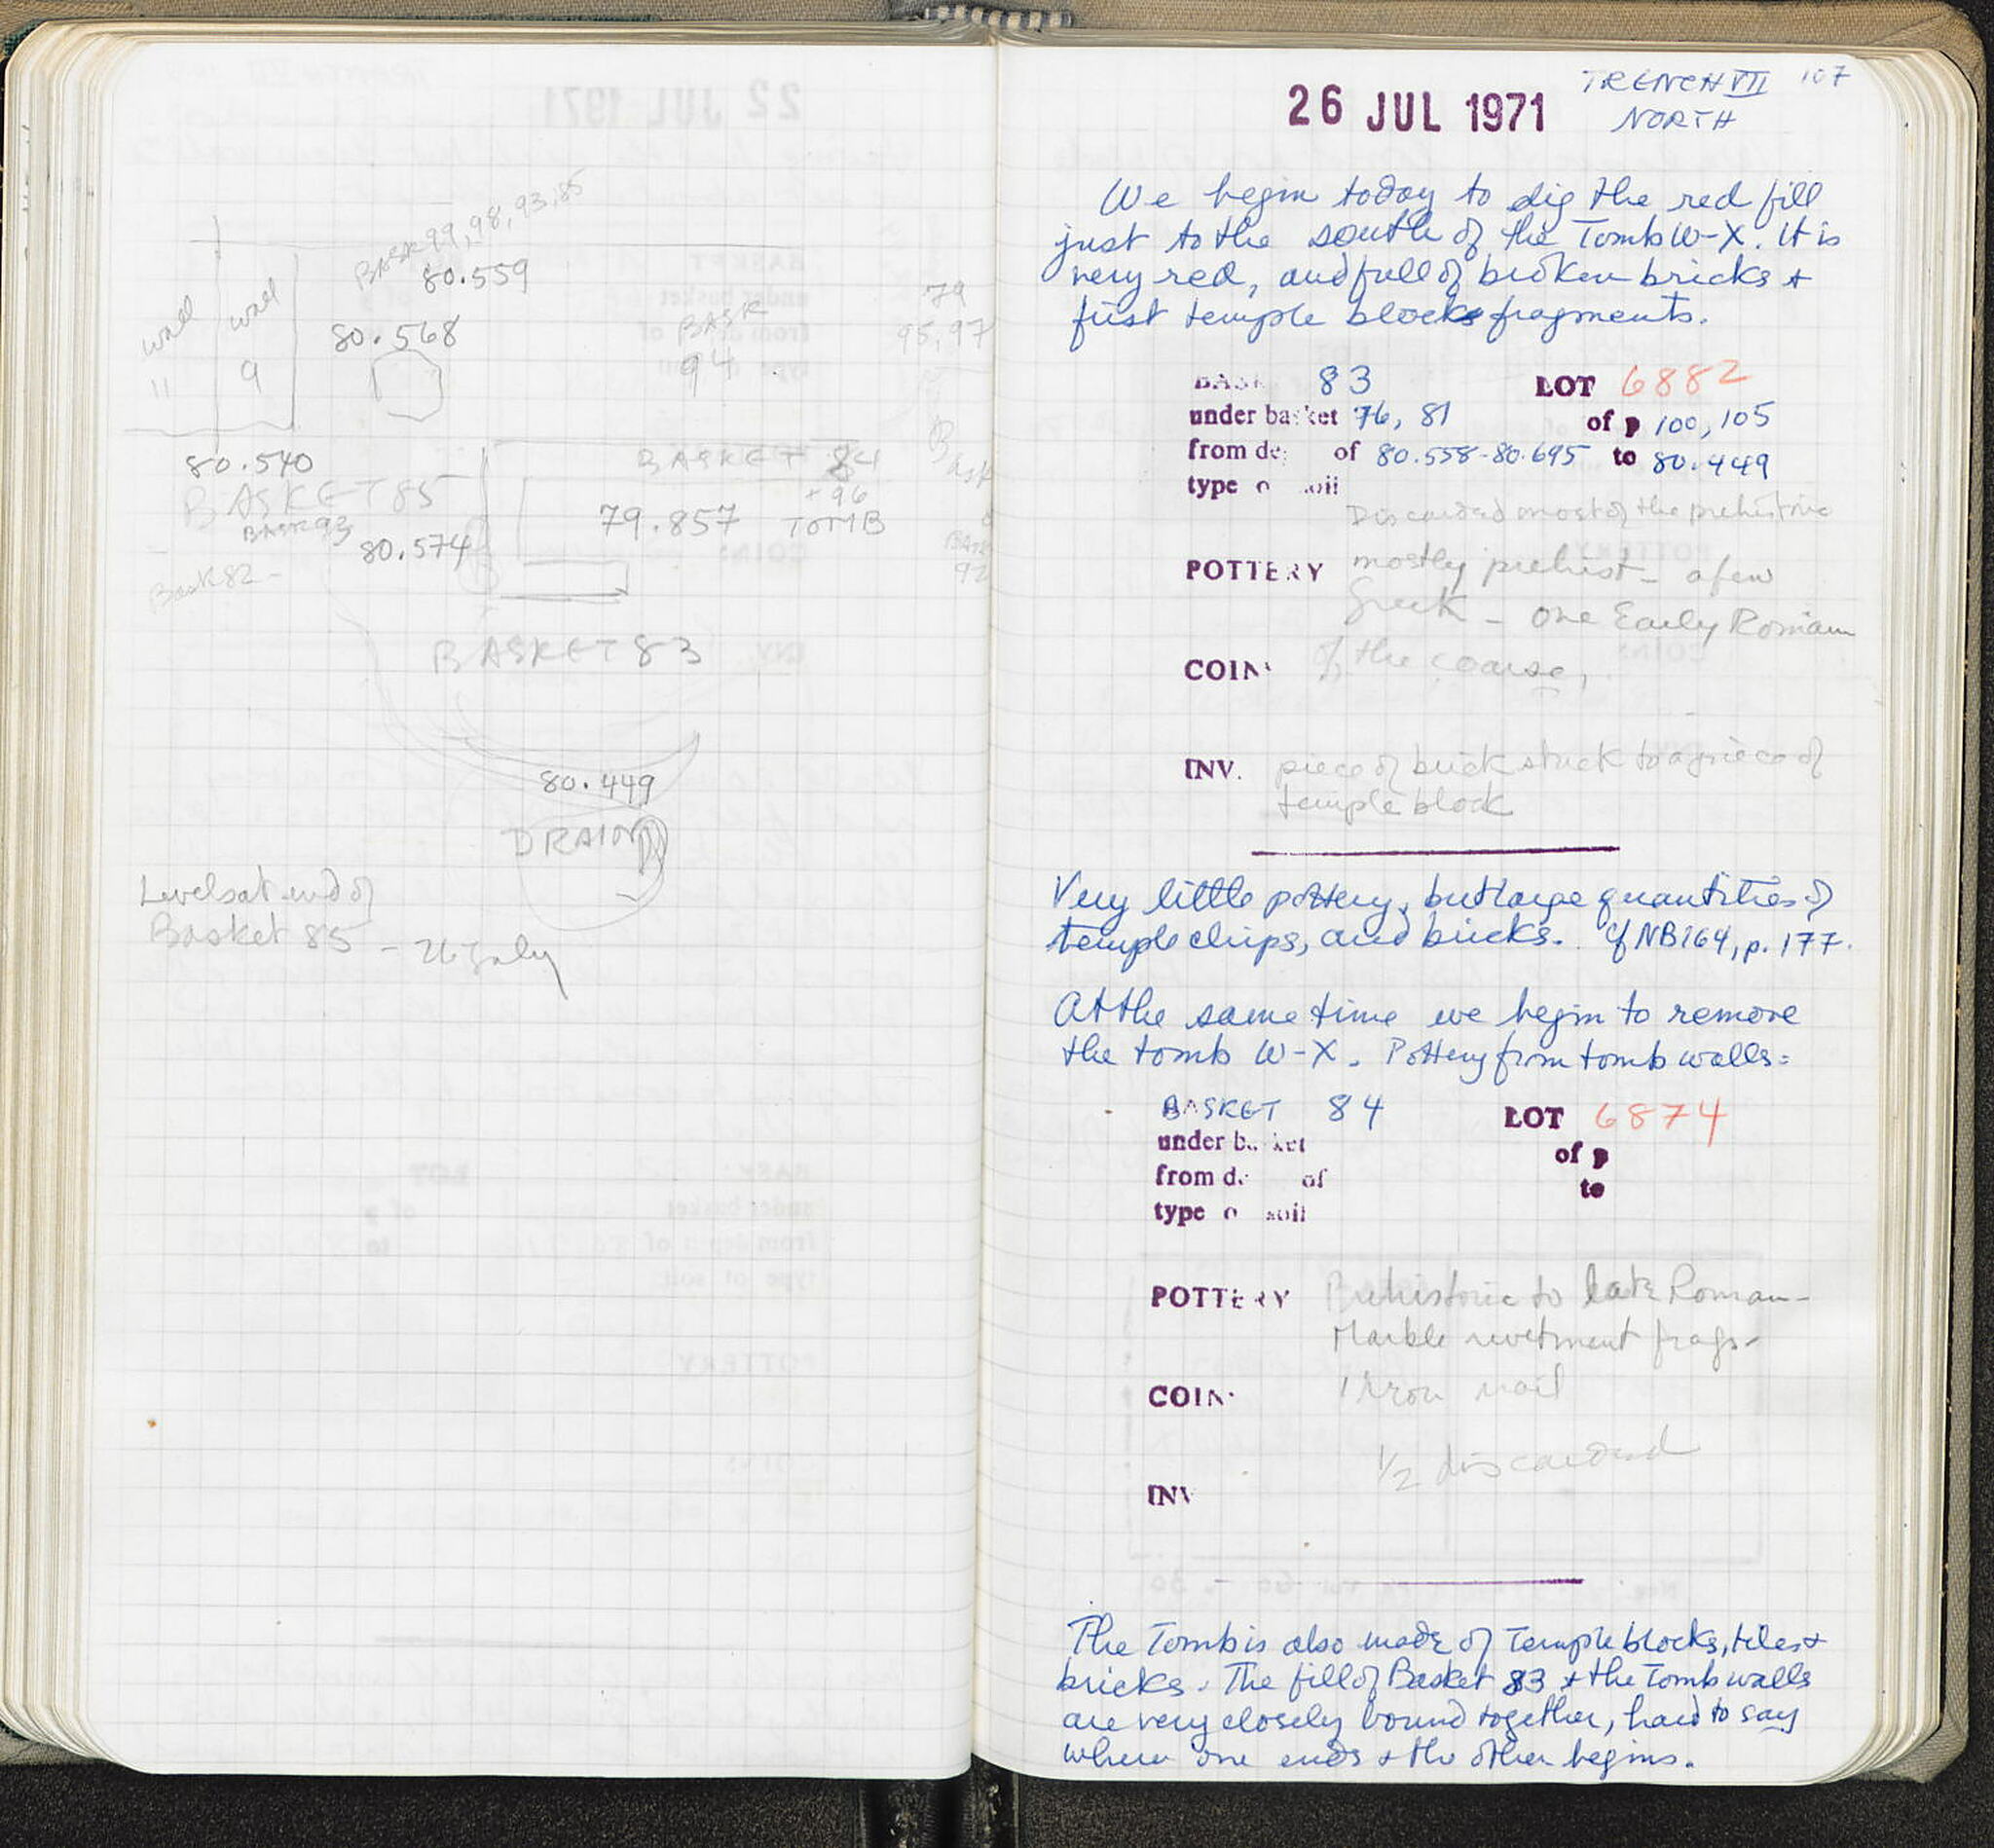 BASK 99, 98, 93, 85
80.559
wall
wall
80.568
BASK
94
79
95, 97
11
9
80.540
BASKET 84
+ 96
Bask
BASKET 85
BASK 93
80.574
79.857 TOMB
Bask
92
Bask 82 -
BASKET 83
80.449
DRAIN
Levels at end of
Basket 85 - 26 July
26 JUL 1971
TRENCH VII 107
NORTH
We begin today to dig the red fill
just to the south of the Tomb W-X. It is
very red, and full of broken bricks +
first temple block fragments.
BASK 83 LOT 6882
under basket 76, 81 of p 100, 105
from de of 80.558-80.695 to 80.449
type o soil
Discarded most of the prehistoric
POTTERY mostly prehist - a few
Greek - one Early Roman
COIN of the coarse,
INV. piece of brick stuck to a piece of
temple block
Very little pottery, but large quantities of
temple chips, and bricks. Cf NB 164, p. 177.
At the same time we begin to remove
the tomb W-X. Pottery from tomb walls:
BASKET 84 LOT 6874
under basket of p
from d of to
type o soil
POTTERY Prehistoric to late Roman -
Marble revetment frags -
COIN 1 iron nail
1/2 discarded
INV
The Tomb is also made of Temple blocks, tiles +
bricks. The fill of Basket 83 + the Tomb walls
are very closely bound together, hard to say
where one ends + the other begins.